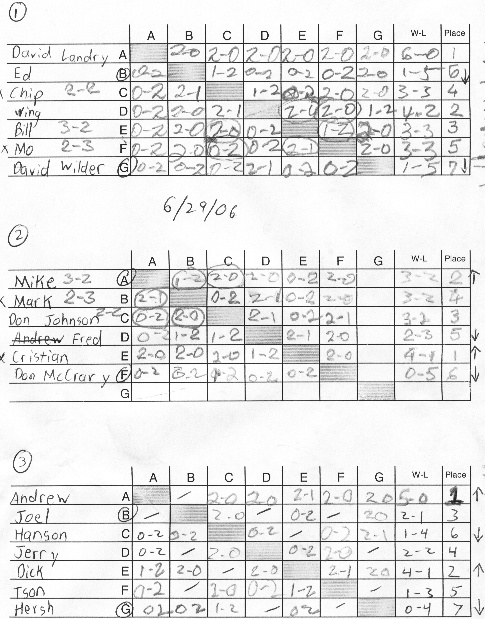 ①
A B C D E F G W-L Place
David Landry A 2-0 2-0 2-0 2-0 2-0 2-0 6-0 1
Ed B 0-2 1-2 0-2 0-2 0-2 2-0 1-5 6↓
x Chip 2-2 C 0-2 2-1 1-2 0-2 2-0 2-0 3-3 4
Wing D 0-2 2-0 2-1 2-0 2-0 1-2 4-2 2
Bill 3-2 E 0-2 2-0 2-0 0-2 1-2 2-0 3-3 3
x Mo 2-3 F 0-2 2-0 0-2 0-2 2-1 2-0 3-3 5
David Wilder G 0-2 0-2 0-2 2-1 0-2 0-2 1-5 7↓
6/29/06
②
A B C D E F G W-L Place
Mike 3-2 A 1-2 2-0 2-0 0-2 2-0 3-2 2↑
x Mark 2-3 B 2-1 0-2 2-1 0-2 2-0 3-2 4
Don Johnson 2-2 C 0-2 2-0 2-1 0-2 2-1 3-2 3
Andrew Fred D 0-2 1-2 1-2 2-1 2-0 2-3 5↓
x Cristian E 2-0 2-0 2-0 1-2 2-0 4-1 1↑
Don McCrary F 0-2 0-2 1-2 0-2 0-2 0-5 6↓
G
③
A B C D E F G W-L Place
Andrew A / 2-0 2-0 2-1 2-0 2-0 5-0 1↑
Joel B / 2-0 / 0-2 / 2-0 2-1 3
Hanson C 0-2 0-2 0-2 / 0-2 2-1 1-4 6↓
Jerry D 0-2 / 2-0 0-2 2-0 / 2-2 4
Dick E 1-2 2-0 / 2-0 2-1 2-0 4-1 2↑
Tson F 0-2 / 2-0 0-2 1-2 / 1-3 5
Hersh G 0-2 0-2 1-2 / 0-2 / 0-4 7↓